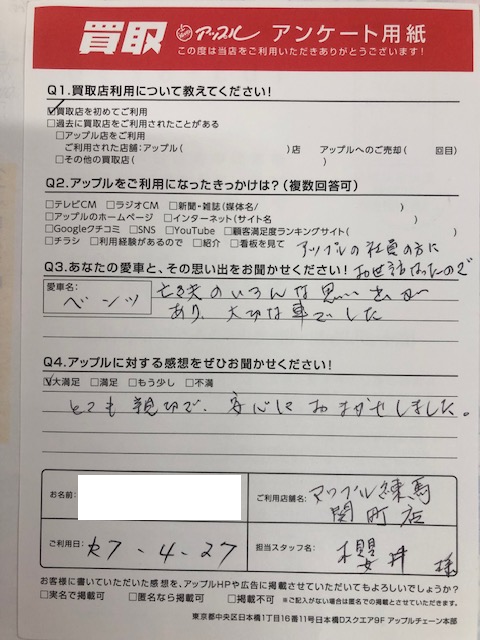 買取 アップル アンケート用紙
この度は当店をご利用いただきありがとうございます!
Q1.買取店利用について教えてください!
☑買取店を初めてご利用
□過去に買取店をご利用されたことがある
□アップル店をご利用
ご利用された店舗:アップル( )店 アップルへのご売却( 回目)
□その他の買取店( )
Q2.アップルをご利用になったきっかけは?(複数回答可)
□テレビCM □ラジオCM □新聞・雑誌(媒体名/ )
□アップルのホームページ □インターネット(サイト名 )
□Googleクチコミ □SNS □YouTube □顧客満足度ランキングサイト( )
□チラシ □利用経験があるので □紹介 □看板を見て アップルの社員の方に
お世話なったので
Q3.あなたの愛車と、その思い出をお聞かせください!
愛車名:
ベンツ
亡き夫のいろんな思い出が
あり、大切な車でした
Q4.アップルに対する感想をぜひお聞かせください!
☑大満足 □満足 □もう少し □不満
とても親切で、安心しておまかせしました。
お名前:
ご利用店舗名: アップル練馬
関町店
ご利用日: R7-4-27
担当スタッフ名: 櫻井 様
お客様に書いていただいた感想を、アップルHPや広告に掲載させていただいてもよろしいでしょうか?
□実名で掲載可 □匿名なら掲載可 □掲載不可 ※ご記入がない場合は匿名での掲載とさせていただきます。
東京都中央区日本橋1丁目16番11号日本橋Dスクエア9F アップルチェーン本部